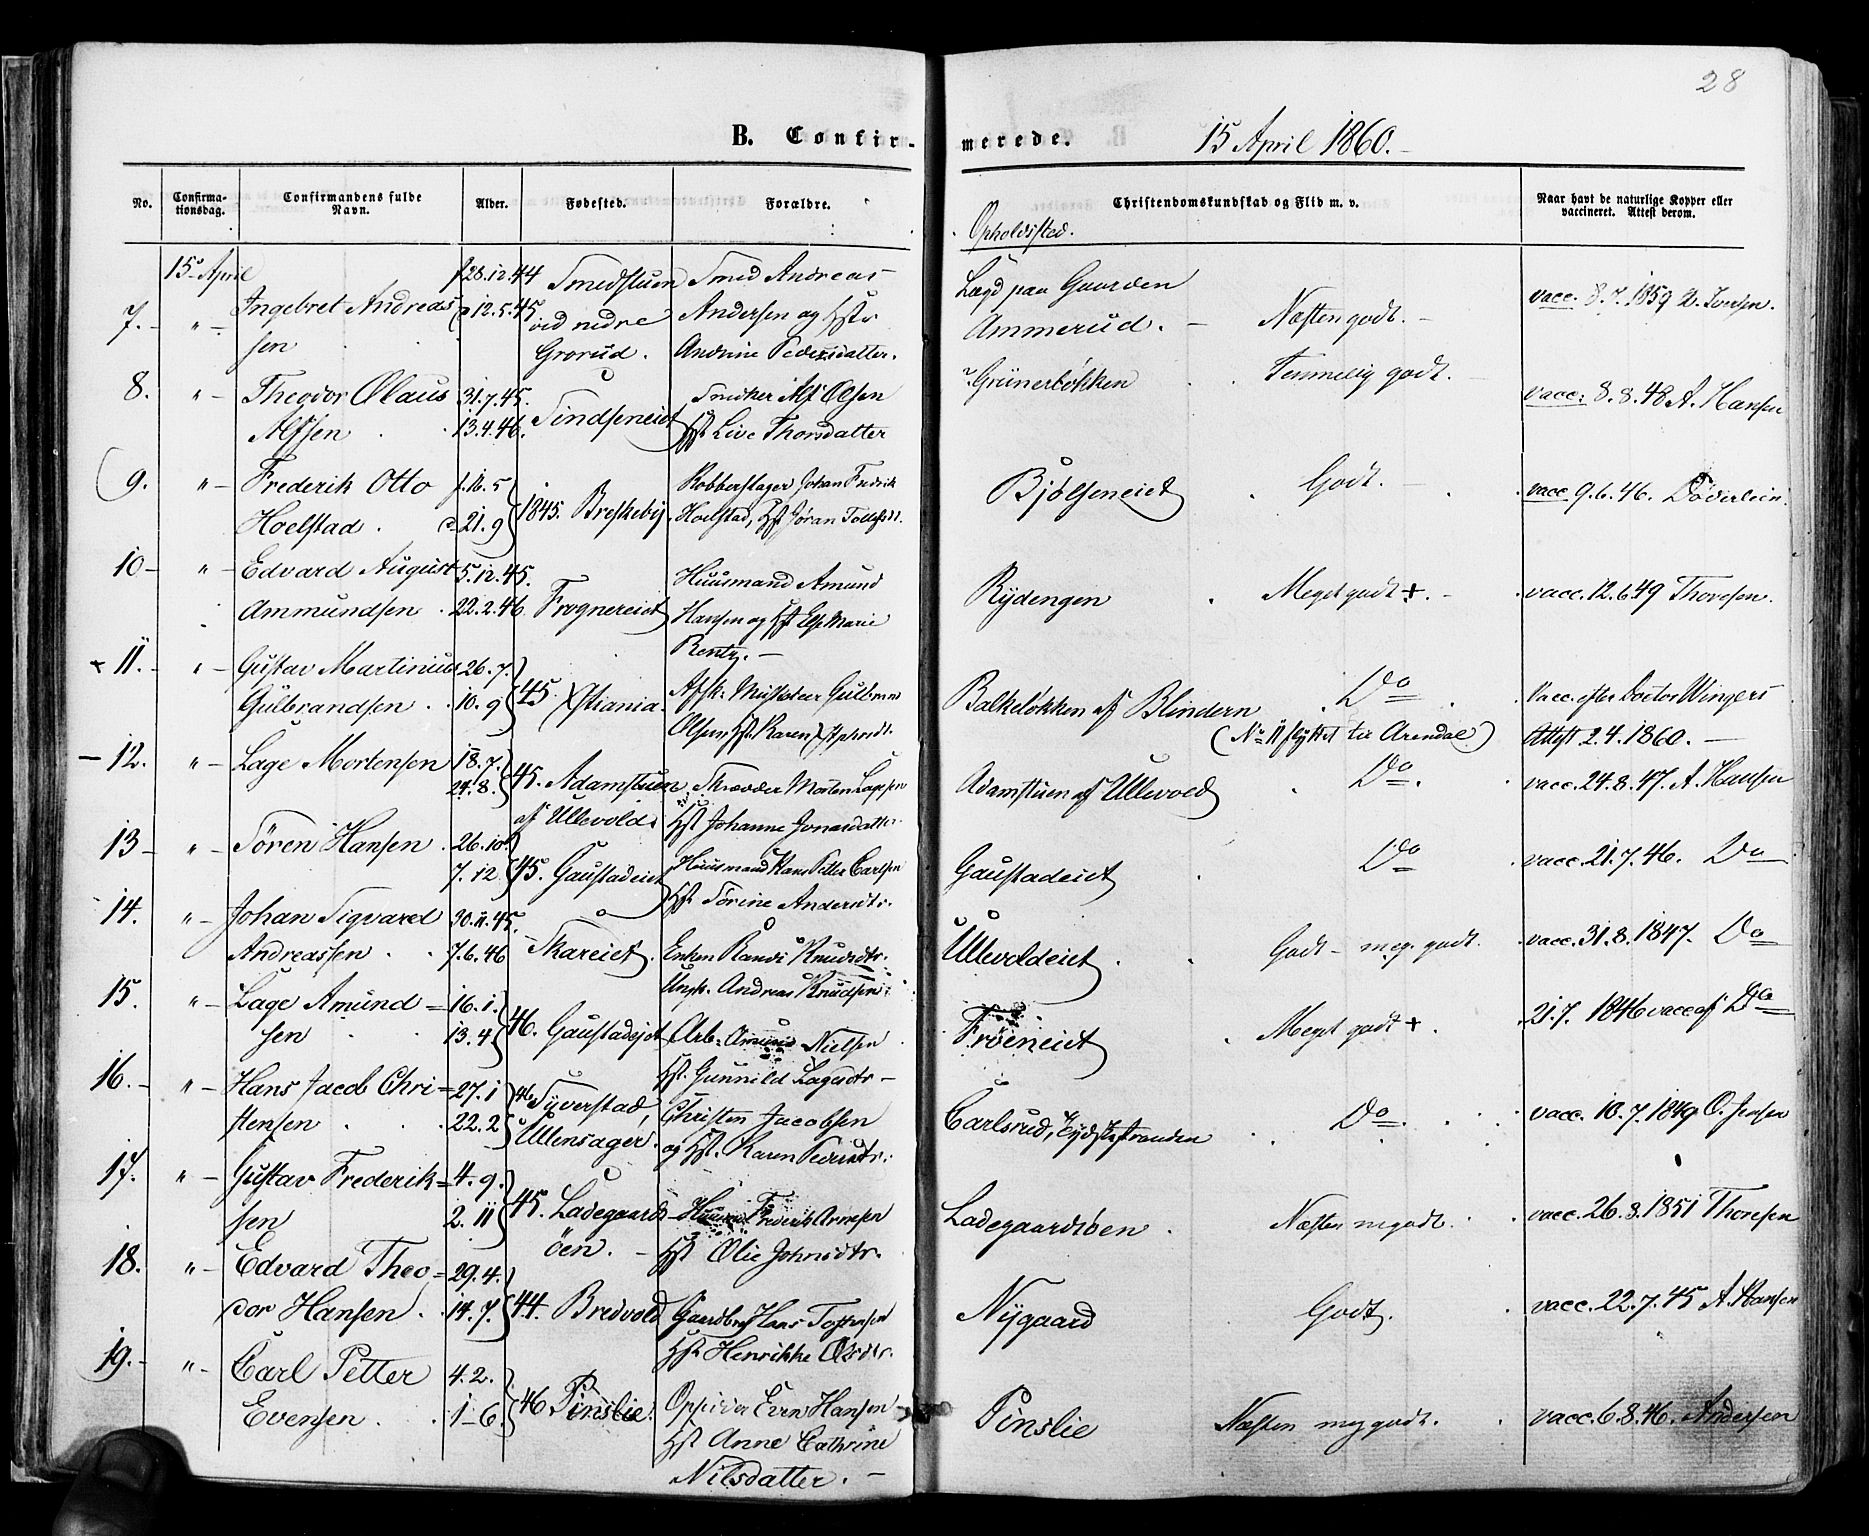 28
B. Confirmerede. 15 April 1860.
No.
Confirmationsdag.
Confirmandens fulde Navn.
Alder.
Fødested.
Forældre.
Christendomskundskab og Flid m. v.
Naar havt de naturlige Kopper eller vaccineret. Attest derom.
Opholdssted.
15 April f 28.12.44 Smedstuen Smed Andreas Lægd paa Gaarden
7. " Ingebret Andreas d 12.5.45. ved nedre Andersen og Hstr. Ammerud. Næsten godt. vacc. 8.7.1859 Iversen.
sen Grorud. Andrine Pedersdatter.
8. " Theodor Olaus 31.7.45. Sindseneiet Snedker Alf Olsen Grünerløkken Temmelig godt. vacc. 8.8.48 A. Hansen
Alfsen 13.4.46. Hst Live Thorsdatter
9. " Frederik Otto f. 16.5 1845. Breskeby. Kobberslager Johan Fredrik Bjølseneiet Godt. vacc. 9.6.46. Döderlein
Hoelstad. d. 21.9 Hoelstad, Hst Jøran
10 " Edvard August 5.12.45. Frognereiet Huusmand Amund Rydengen Meget godt +. vacc. 12.6.49 Thoresen.
Ammundsen 22.2.46 Hansen og Hst Else Marie
Rentz.
+ 11. " Gustav Martinius 26.7. 45. Xstiania. Gulbrand Balkeløkken af Blindern Do Vacc. efter Doctor Wingers
Gulbrandsen 10.9 Olsen Hst. Karen (No 11 flyttet til Arendal) Attest 2.4.1860.
12. " Lage Mortensen 18.7. 45. Adamstuen Skrædder Morten Adamstuen af Ullevold Do. vacc. 24.8.47. A. Hansen
24.8. af Ullevold. Hst Johanne Jonasdatter
13 " Søren Hansen 26.10 45. Gaustadeiet Huusmand Hans Petter Carlsen Gaustadeiet Do vacc. 21.7.46. Do
7.12 Hst Sørine Andersdtr.
14. " Johan Sigvard 30.11.45. Skareiet. Enken Randi Knudsdtr. Ullevoldeiet Godt - meg. godt. vacc. 31.8.1847. Do
Andreassen 7.6.46 Ungk. Andreas Knudsen
15. " Lage Amund= 16.1. 46. Gaustadejet Arb. Amund Nielsen Frøeneiet Meget godt +. 21.7. 1846 vacc af Do
sen 13.4 Hst. Gunnild Lagesdtr
16. " Hans Jacob Chri= 27.1 46 Syverstad, Christen Jacobsen Carlsrud, Tydskestranden Do. vacc. 10.7.1849 O. Jensen
stensen 22.2 Ullensager. og Hst. Karen Pedersdtr.
17. " Gustav Frederik= 4.9. 45. Ladegaards Frederik Arnesen Ladegaardsøen. Næsten m godt. vacc. 26.8.1851 Thoresen
sen 2.11 øen. Hst Olie Johnsdtr.
18. " Edvard Theo= 29.4. 44. Bredvold Gaardbr Hans Tostensen Nygaard Godt. vacc. 22.7.45 A. Hansen
dor Hansen. 14.7. Hst Henrikke Olsdtr.
19. " Carl Petter 4.2. 46 Pinslie. Opsidder Even Hansen Pinslie Næsten meg godt. vacc. 6.8.46. Andersen
Evensen. 1-6. Hst Anne Cathrine
Nilsdatter.